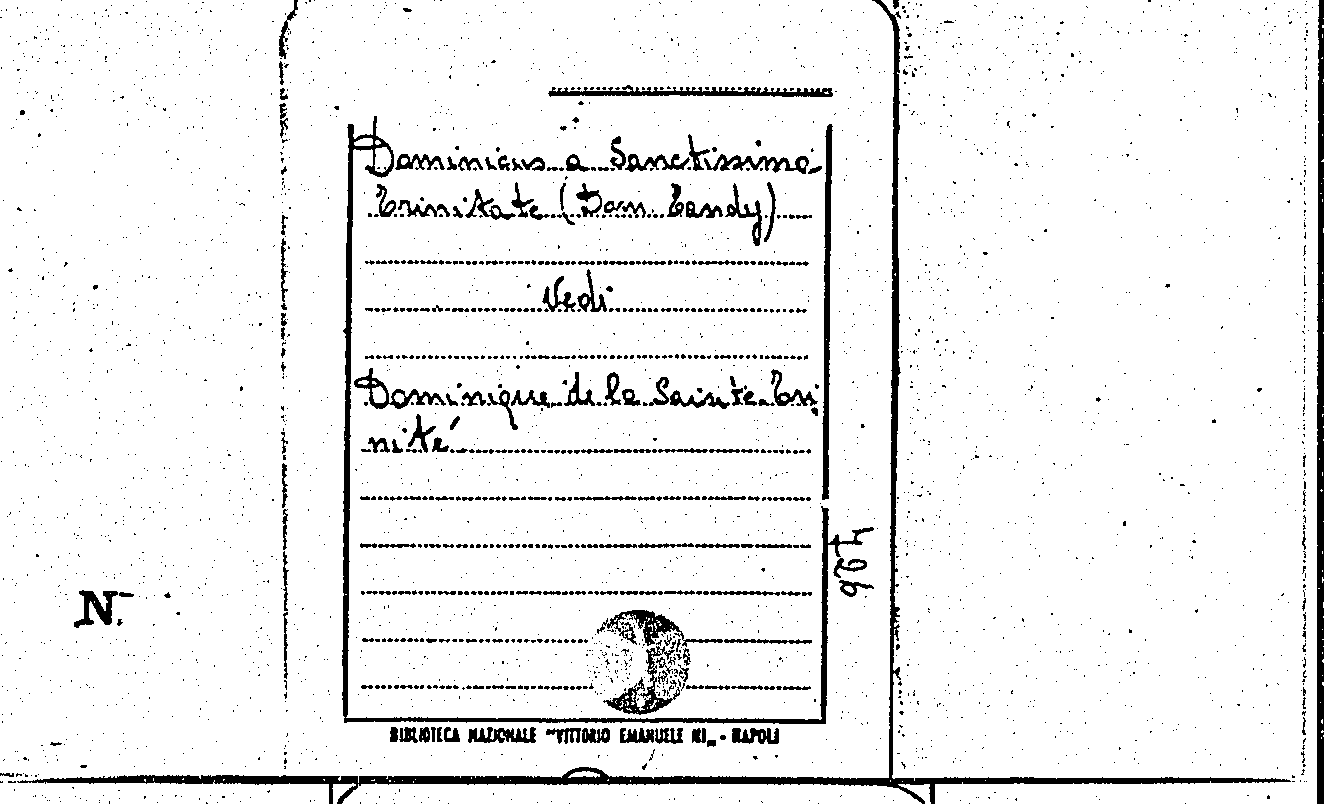 Dominicus a Sanctissima
Trinitate (Dom. Tandy)
Vedi
Dominique de la Sainte-Tri
nité
N.
BIBLIOTECA NAZIONALE "VITTORIO EMANUELE III" - NAPOLI